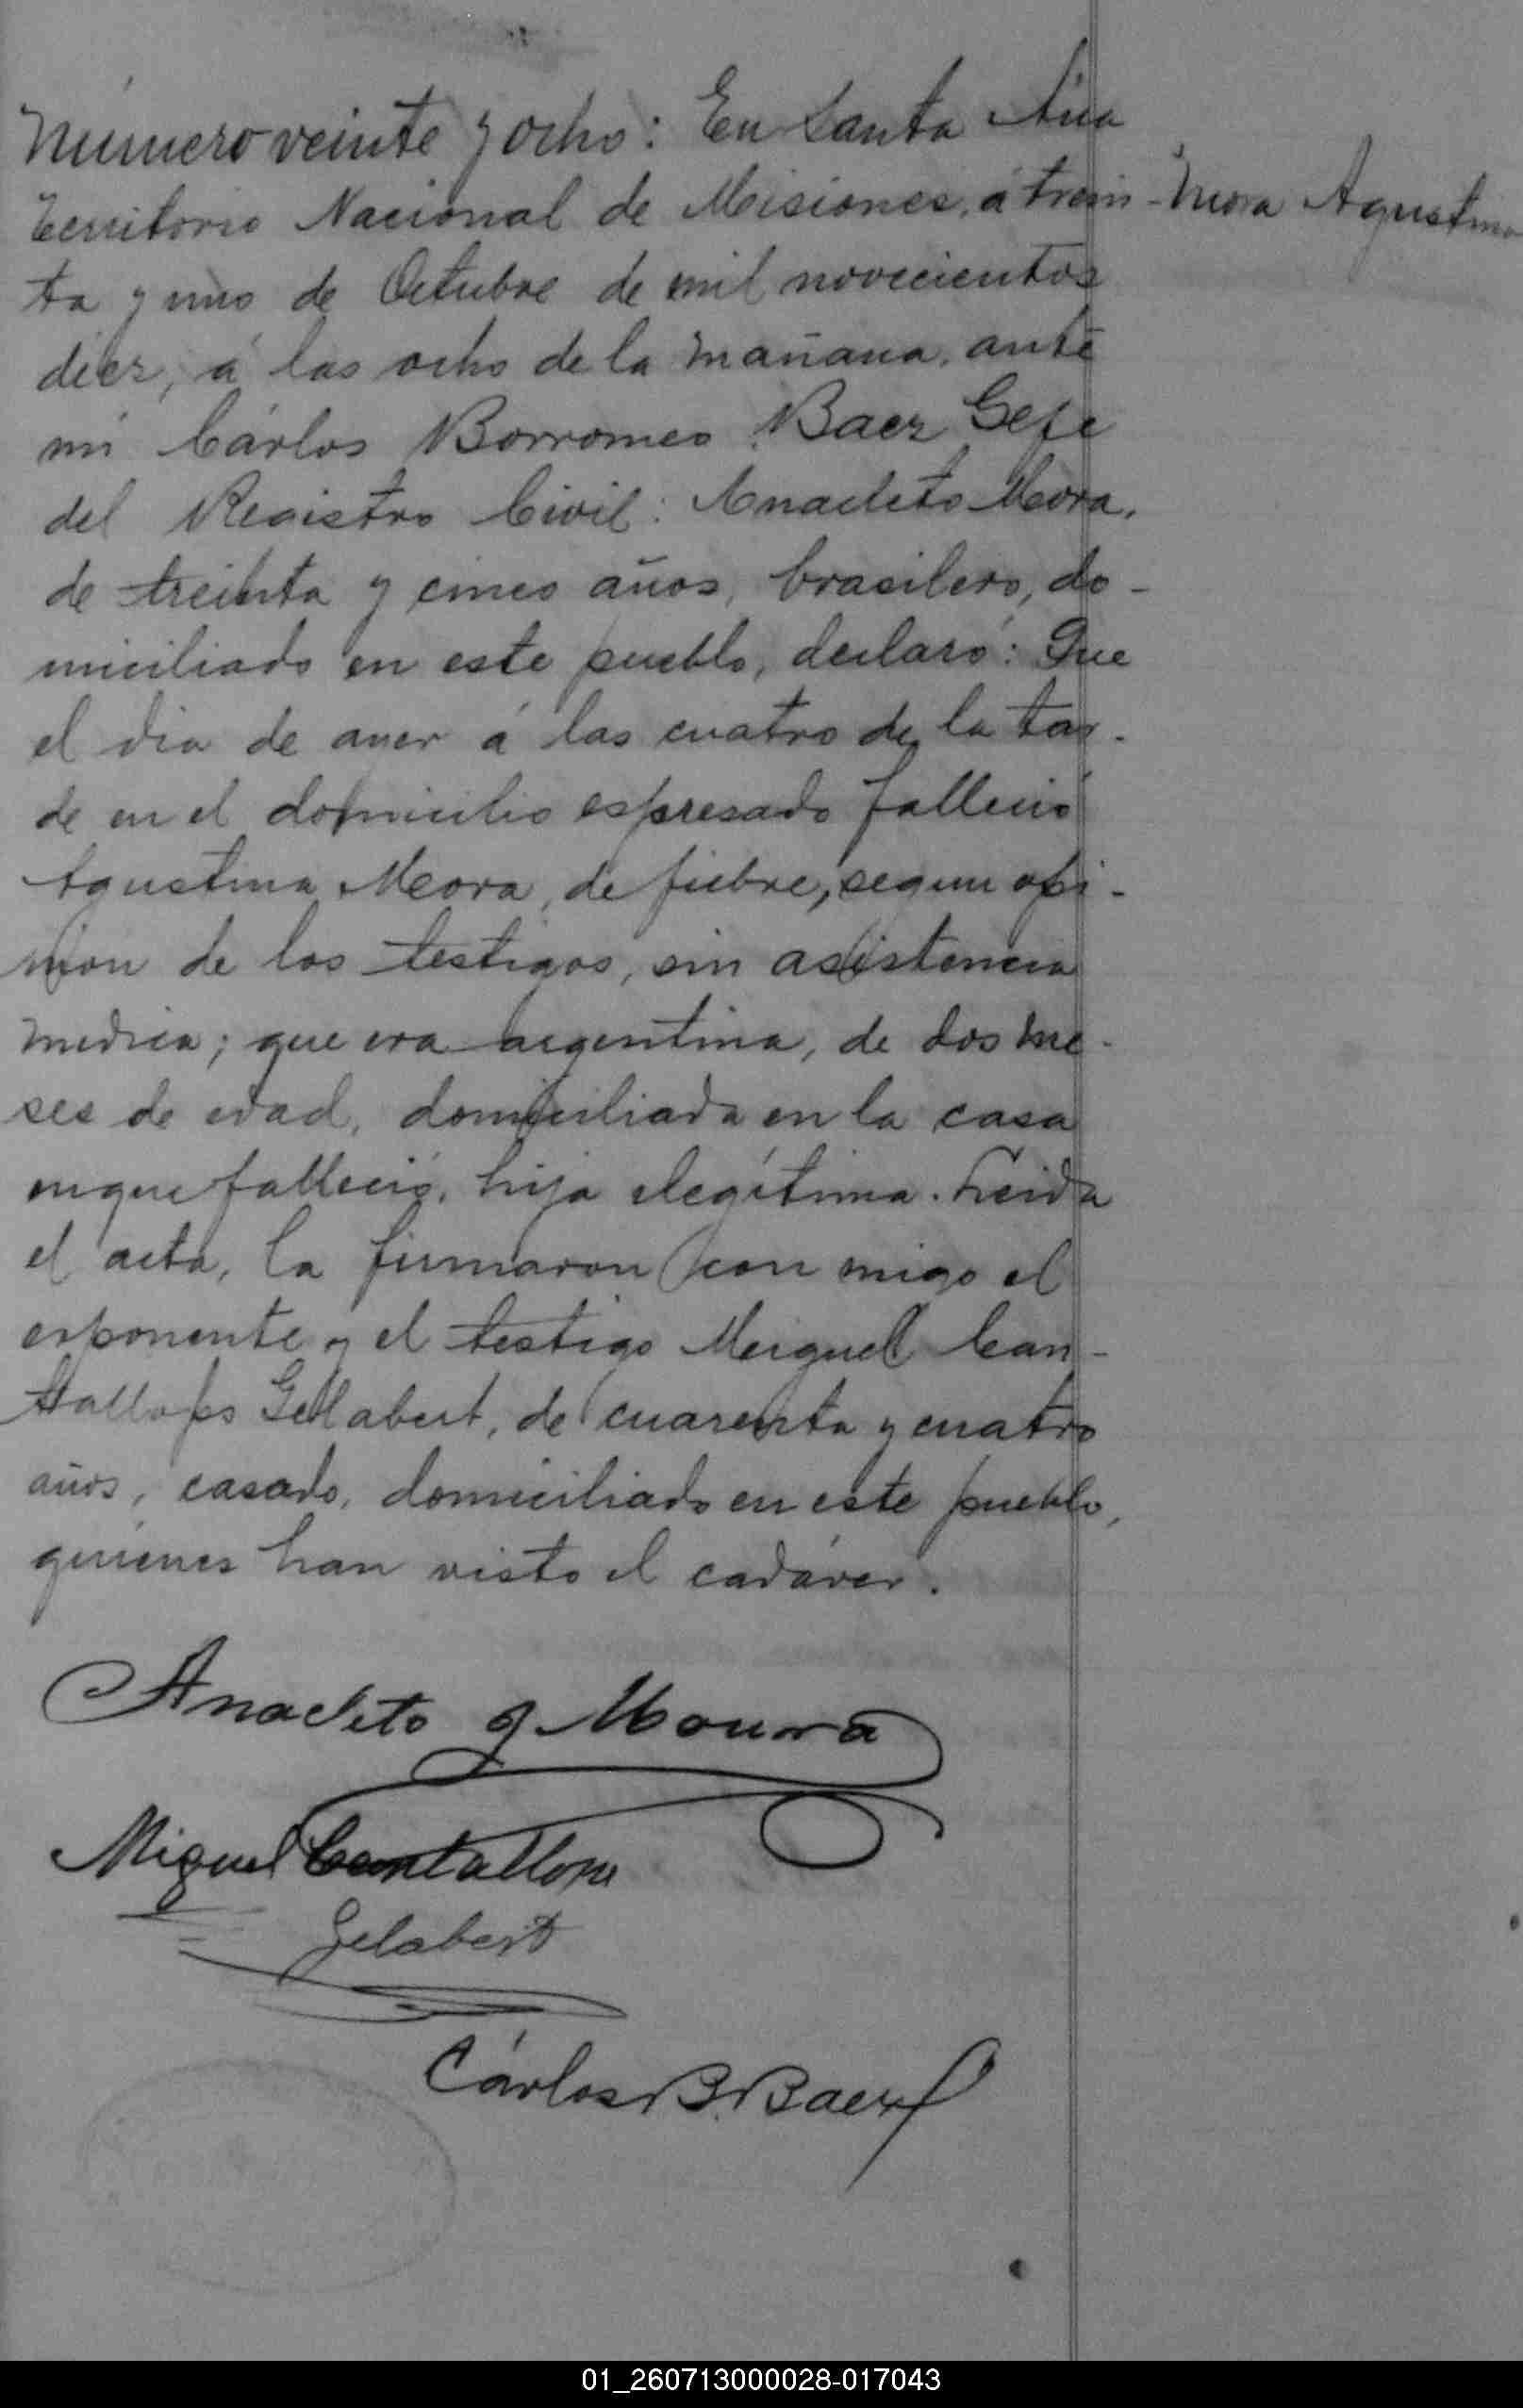 Número veinte y ocho: En Santa Ana
Territorio Nacional de Misiones, á trein-
Mora Agustina
ta y uno de Octubre de mil novecientos
diez, á las ocho de la mañana, ante
mi Cárlos Borromeo Baez Gefe
del Registro Civil: Anacleto Mora,
de treinta y cinco años, brasilero, do-
miciliado en este pueblo, declaró: Que
el dia de ayer á las cuatro de la tar-
de en el domicilio espresado falleció
Agustina Mora, de fiebre, segun opi-
nion de los testigos, sin asistencia
medica; que era argentina, de dos me-
ses de edad, domiciliada en la casa
en que falleció, hija ilegítima. Leida
el acta, la firmaron con migo el
exponente y el testigo Miguel Can-
tallops Gelabert, de cuarenta y cuatro
años, casado, domiciliado en este pueblo,
quienes han visto el cadáver.
Anacleto g Moura
Miguel Cantallops
Gelabert
Cárlos B. Baez
01_260713000028-017043